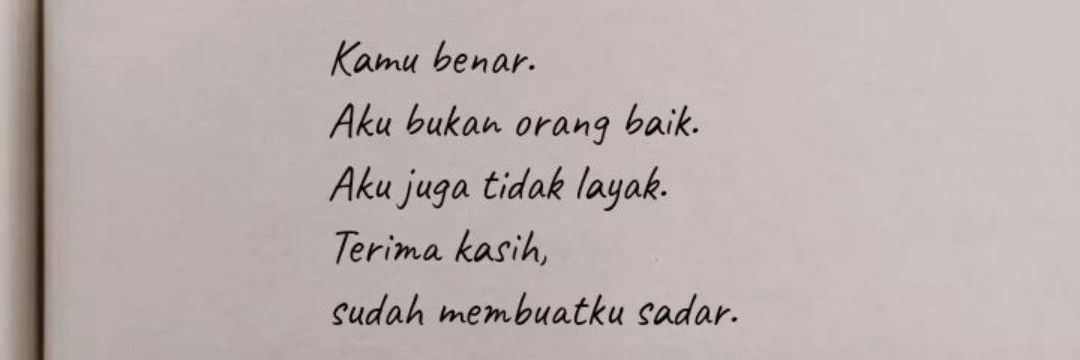 Kamu benar.
Aku bukan orang baik.
Aku juga tidak layak.
Terima kasih,
sudah membuatku sadar.